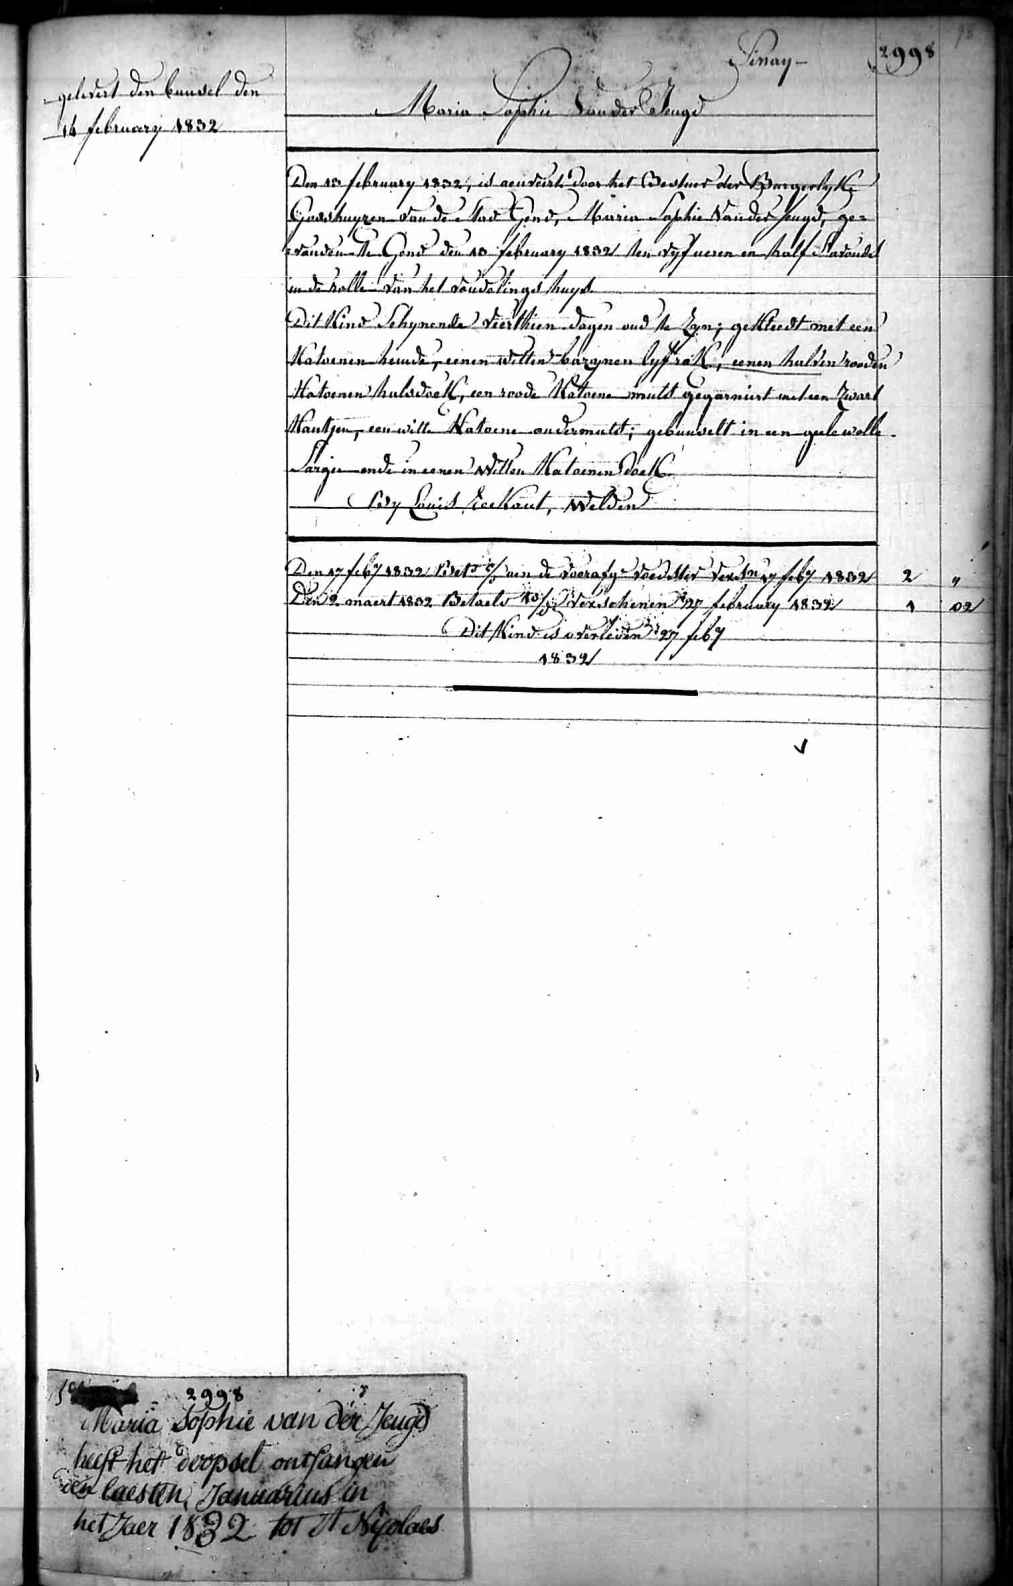 Sinay
2998
gelevert den bunsel den
14 february 1832
Maria Sophie Vander Jeugd
Den 13 february 1832, is aenveirt door het Bestuer der Burgerlyke
Godshuyzen van de Stad Gend, Maria Sophie Vander Jeugd, ge=
vonden te Gend den 13 february 1832 ten vyf ueren en half S'avonds
in de rolle van het vondelings huys
Dit Kind Schynende veerthien dagen oud te Zyn; gekleedt met een
Katoenen hemde, eenen witten bazynen lyfrok, eenen halven rooden
Katoenen halsdoek, een roode Katoene muts gegarniert met een Zwart
Kantjen, een witte Katoene ondermuts; gebunselt in een geele wolle
Sargie ende in eenen Witten Katoenen doek
By Louis Eeckaut, Welden
Den 17 feby 1832 aen de voedster 17 feby 1832 2 "
Den 2 maert 1832 Betaelt Verschenen 27 february 1832 1 02
Dit Kind is overleden 27 feby
1832
2998
Maria Sophie van der Jeugd
heeft het doopsel ontfangen
den laesten Januarius in
het Jaer 1832 tot St Nijolaes